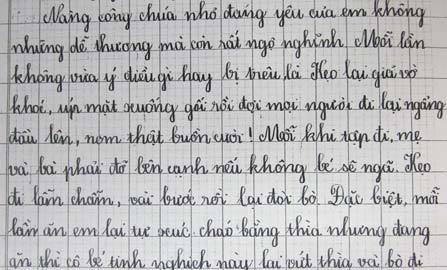 Nàng công chúa nhỏ đáng yêu của em không
những dễ thương mà còn rất ngộ nghĩnh. Mỗi lần
không vừa ý điều gì hay bị trêu là Kẹo lại giả vờ
khóc, úp mặt xuống gối rồi đợi mọi người đi lại ngẩng
đầu lên, nom thật buồn cười! Mỗi khi tập đi, mẹ
và bà phải đỡ bên cạnh nếu không bé sẽ ngã. Kẹo
đi lẫm chẫm, vài bước rồi lại đòi bò. Đặc biệt, mỗi
lần ăn em lại tự xúc cháo bằng thìa nhưng đang
ăn thì cô bé tinh nghịch này lại vứt thìa và bò đi